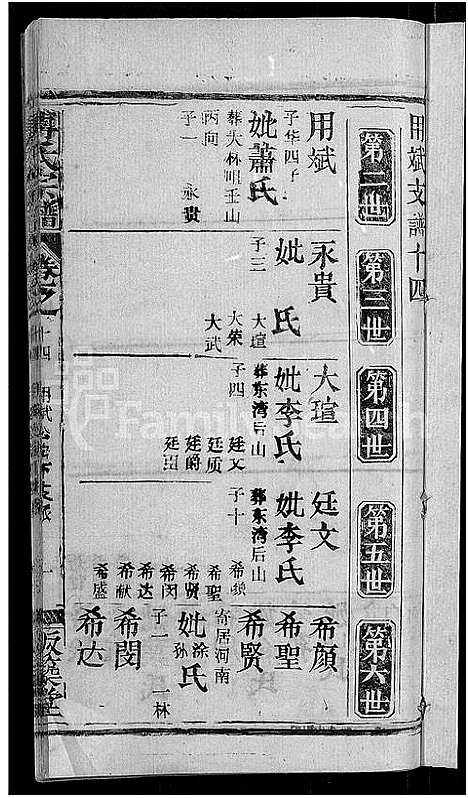 用斌支譜十四
第二世
第三世
第四世
第五世
第六世
用斌
子华四子
妣蕭氏
葬大林明壬山
丙向
子一 永貴
永貴
妣 氏
子三 大瑄
大荣
大武
大瑄
妣李氏
葬东湾后山
子四 廷文
廷质
廷爵
廷臣
廷文
妣李氏
葬东湾后山
子十 希顏
希聖
希賢
希閔
希达
希献
希盛
希顏
希聖
希賢
寄居河南
妣涂氏
孙
子一 一林
希閔
希达
氏宗譜
卷之
十四 用斌公位下支派
一
版築堂
FamilySearch